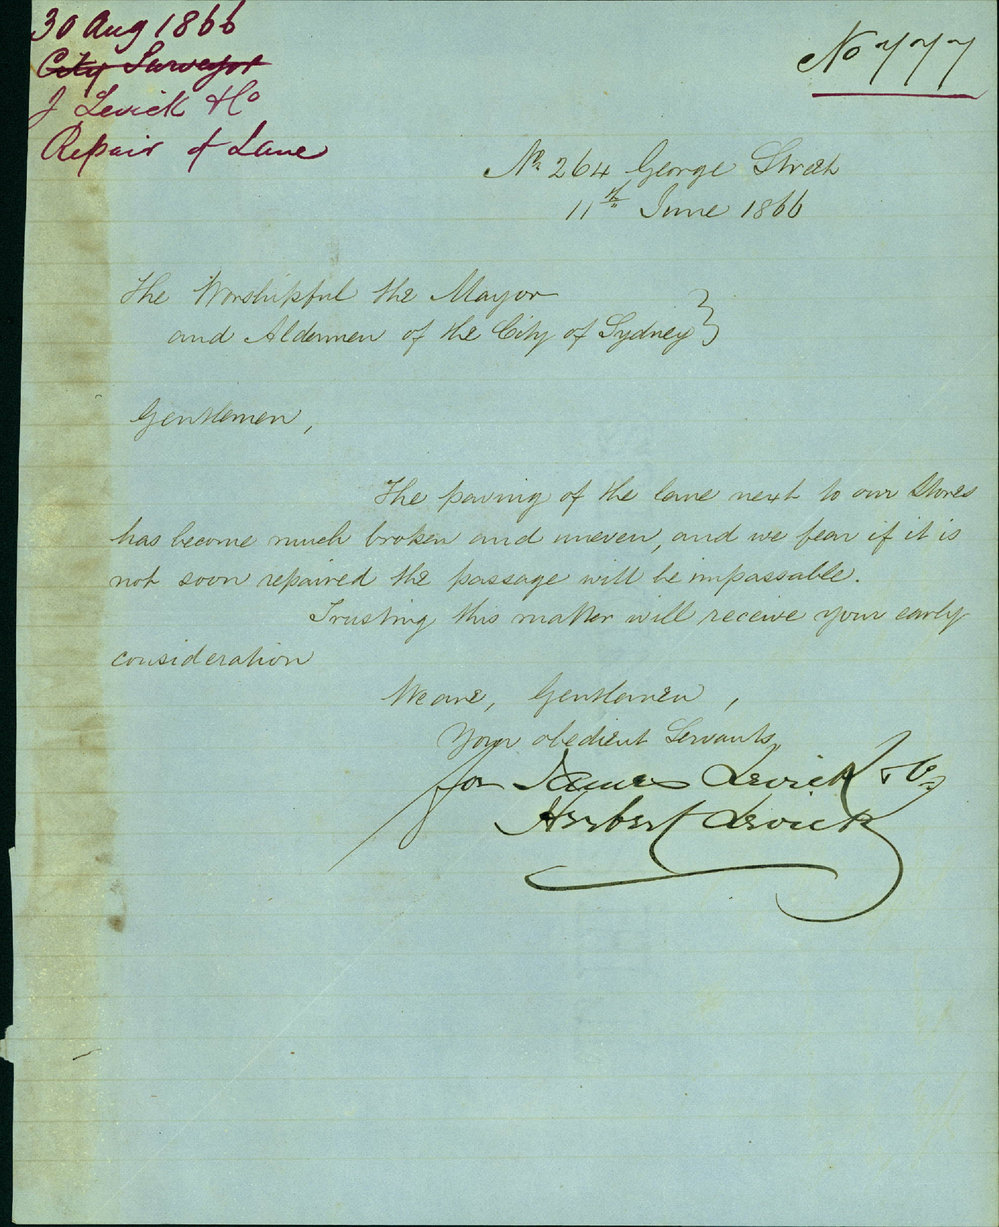 30 Aug 1866
City Surveyor
J Levick & Co
Repair of Lane
No 777
No. 264 George Street
11th June 1866
The Worshipful the Mayor
and Aldermen of the City of Sydney }
Gentlemen,
The paving of the lane next to our Stores
has become much broken and uneven, and we fear if it is
not soon repaired the passage will be impassable.
Trusting this matter will receive your early
consideration
We are, Gentlemen,
Your obedient Servants,
for James Levick & Co.
Herbert Levick